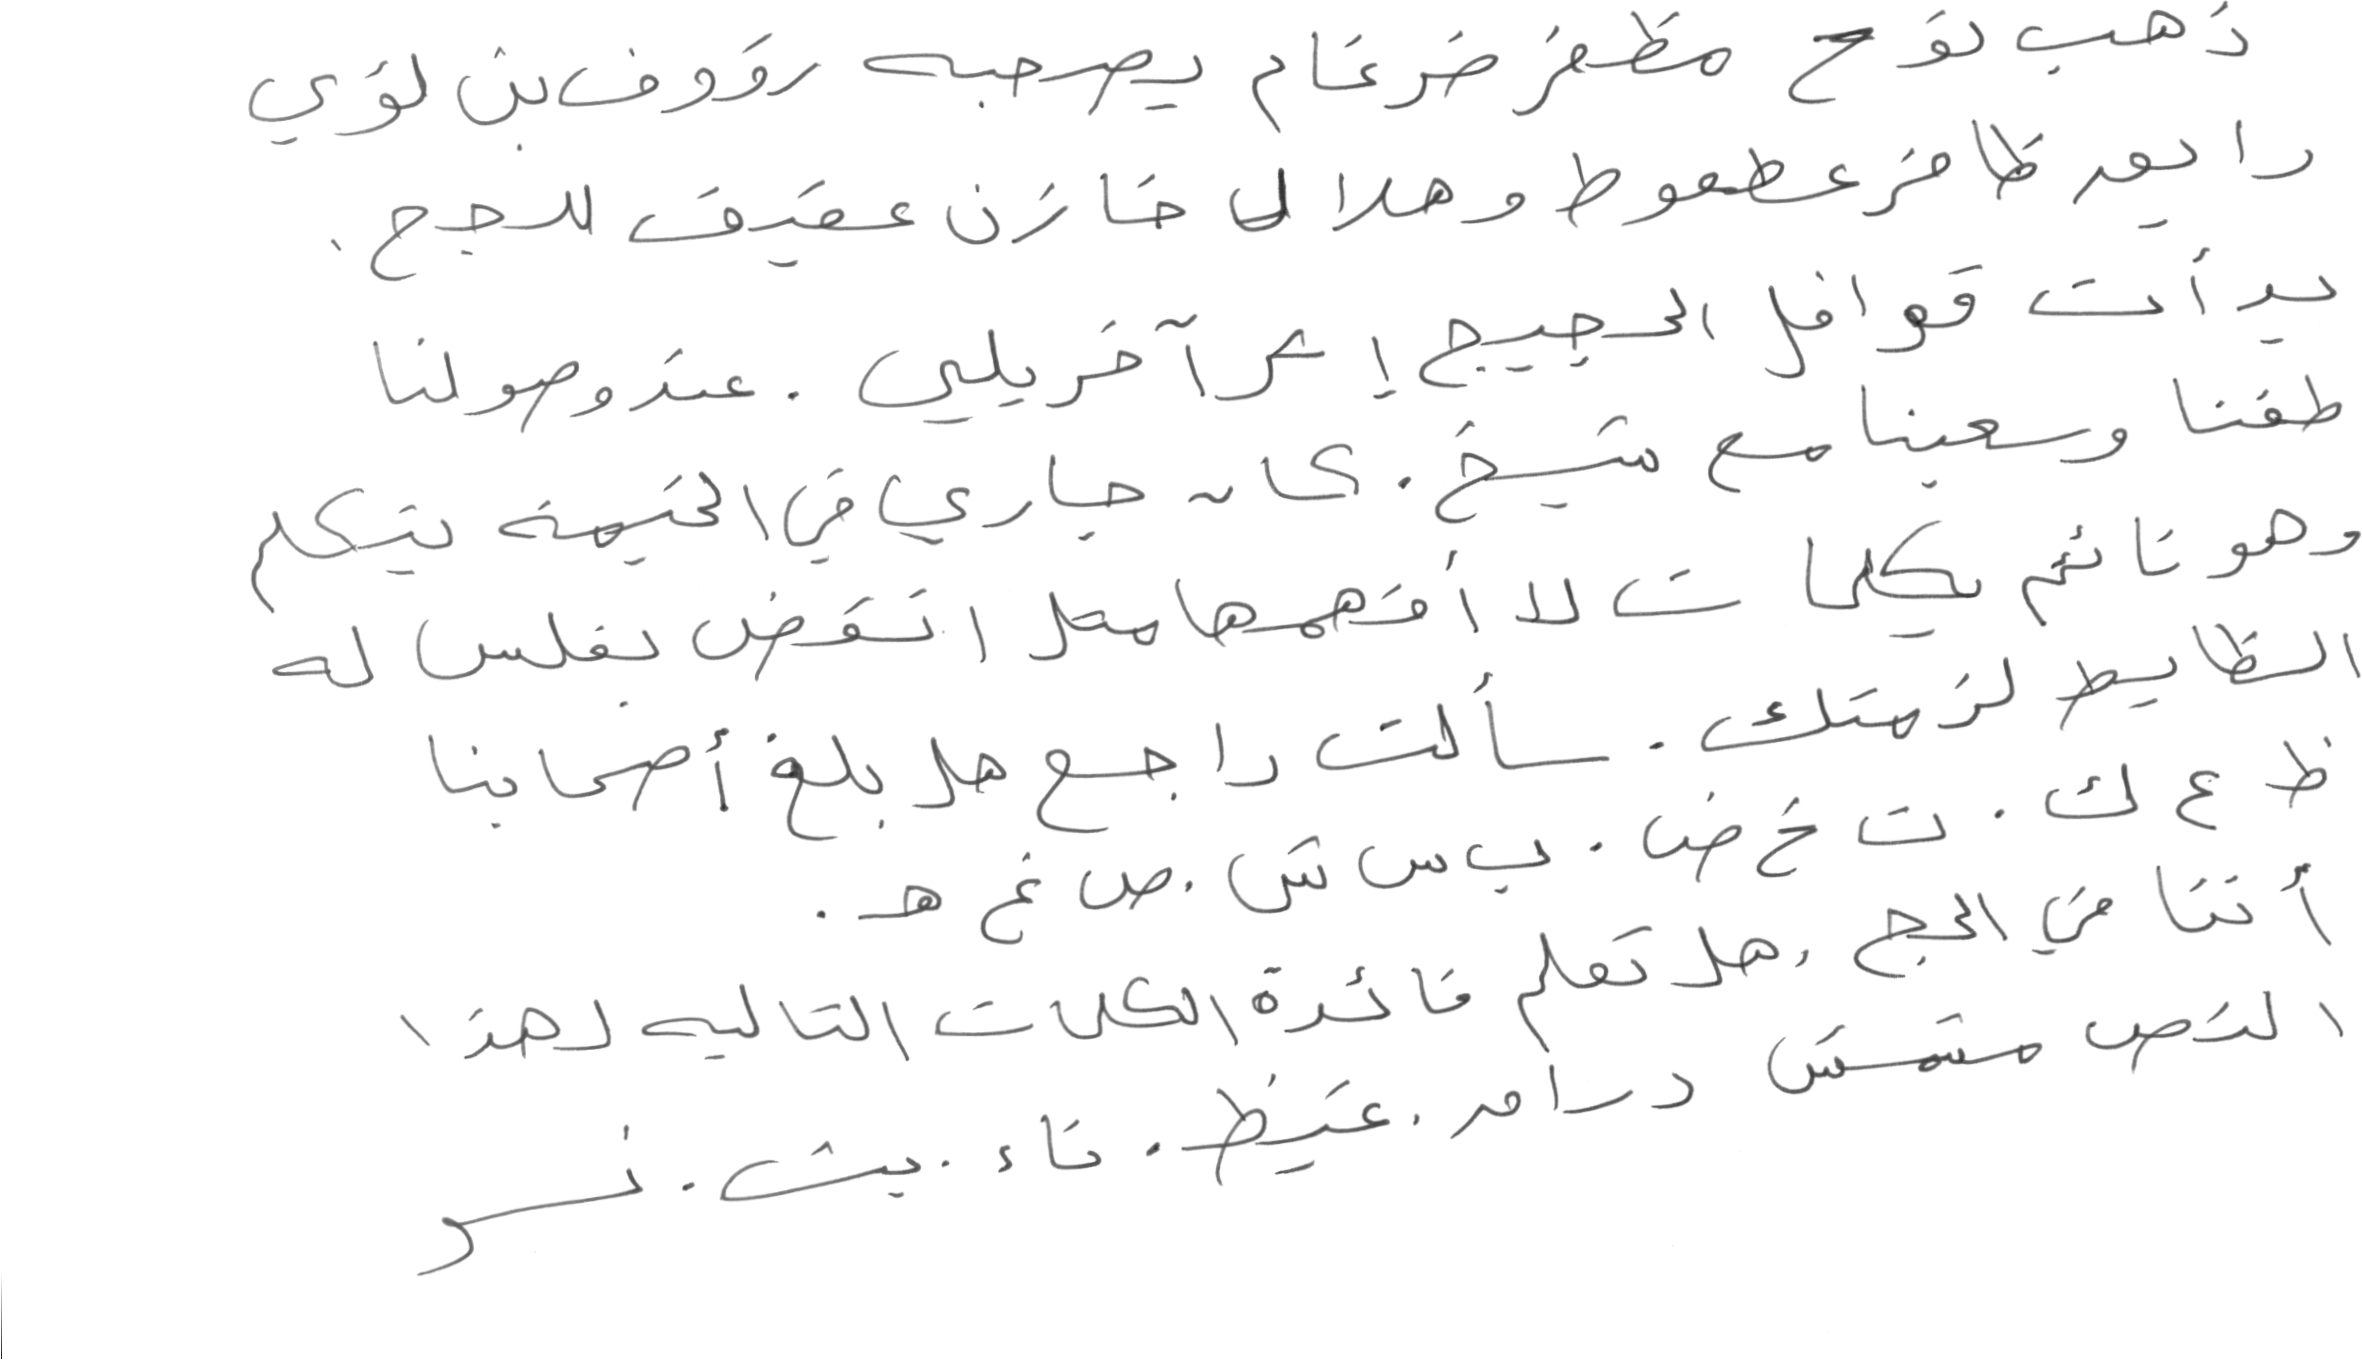 ذهب نوح مظفر ضرغام يصحبه رؤوف بن لؤي
رايق ظافر عطعوط وهلال خازن عفيف للحج .
بدأت قوافل الحجيج إثر آخر يلبي . عند وصولنا
طفنا وسعينا مع شيخ . كان جاري في الخيمه يتكلم
وهو نائم بكلمات لا أفهمها مثل انتقض نفلس له
الظابط لزمتك . سألت راجع هل بلغ أصحابنا
ظ ع ك . ث خ ض . ب س ش . ص غ هـ .
أننا في الحج , هل تعلم فائدة الكلمات التاليه لهذا
النص مشمش دراق . غيظ . ناء . يث . نر